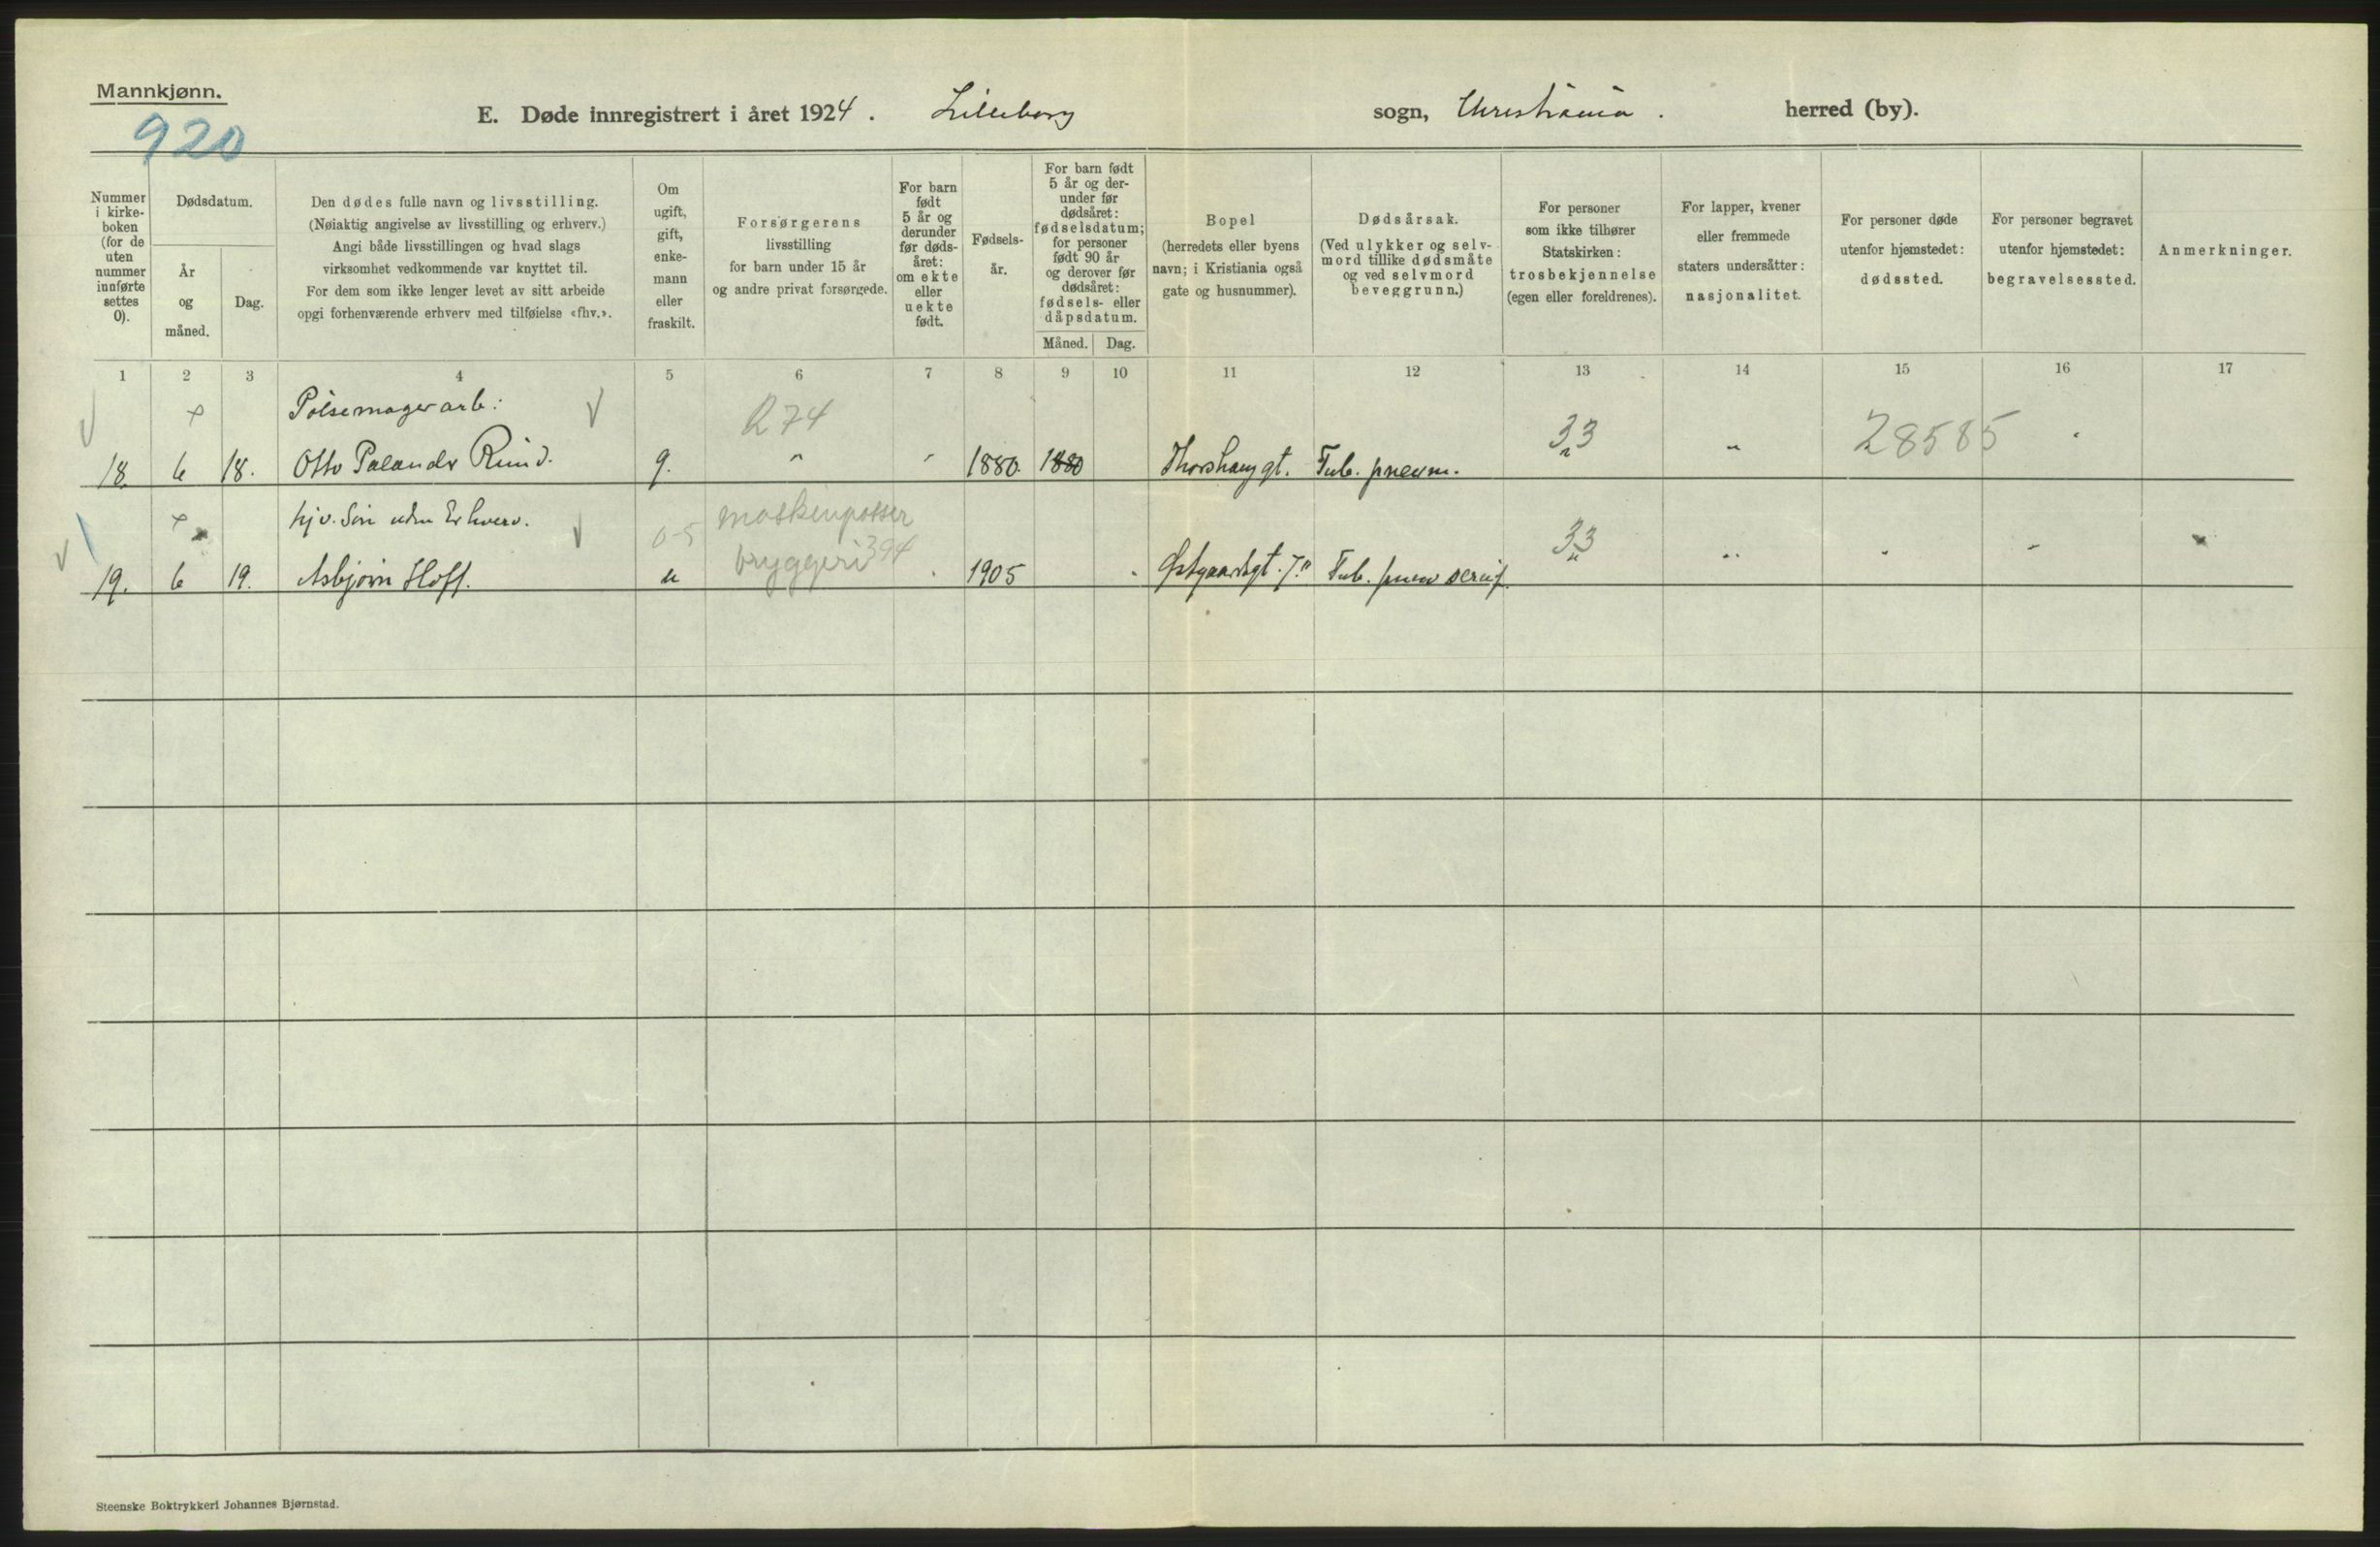 Mannkjønn.
920
E. Døde innregistrert i året 1924. Lilleborg sogn, Christiania. herred (by).
Nummer i kirke-boken (for de uten nummer innførte settes 0).
Dødsdatum.
År og måned.
Dag.
Den dødes fulle navn og livsstilling.
(Nøiaktig angivelse av livsstilling og erhverv.)
Angi både livsstillingen og hvad slags
virksomhet vedkommende var knyttet til.
For dem som ikke lenger levet av sitt arbeide
opgi forhenværende erhverv med tilføielse «fhv.».
Om ugift, gift, enke-mann eller fraskilt.
Forsørgerens
livsstilling
for barn under 15 år
og andre privat forsørgede.
For barn født 5 år og derunder før døds-året: om ekte eller uekte født.
Fødsels-år.
For barn født 5 år og der-under før dødsåret: fødselsdatum; for personer født 90 år og derover før dødsåret: fødsels- eller dåpsdatum.
Måned.
Dag.
Bopel
(herredets eller byens
navn; i Kristiania også
gate og husnummer).
Dødsårsak.
(Ved ulykker og selv-
mord tillike dødsmåte
og ved selvmord
beveggrunn.)
For personer
som ikke tilhører
Statskirken:
trosbekjennelse
(egen eller foreldrenes).
For lapper, kvener
eller fremmede
staters undersåtter:
nasjonalitet.
For personer døde
utenfor hjemstedet:
dødssted.
For personer begravet
utenfor hjemstedet:
begravelsessted.
Anmerkninger.
1 2 3 4 5 6 7 8 9 10 11 12 13 14 15 16 17
Pølsemagerarb:
R74 33 28585
18. 6 18. Otto Palander Rund. g. " 1880. 1880 Thorshauggt. Tub. pneum. " "
hjv. Søn uden Erhverv.
0-5 maskinpasser 33
bryggeri 394
19. 6 19. Asbjørn Hoff. u 1905 Østgaardsgt. 7. Tub. " "
Steenske Boktrykkeri Johannes Bjørnstad.